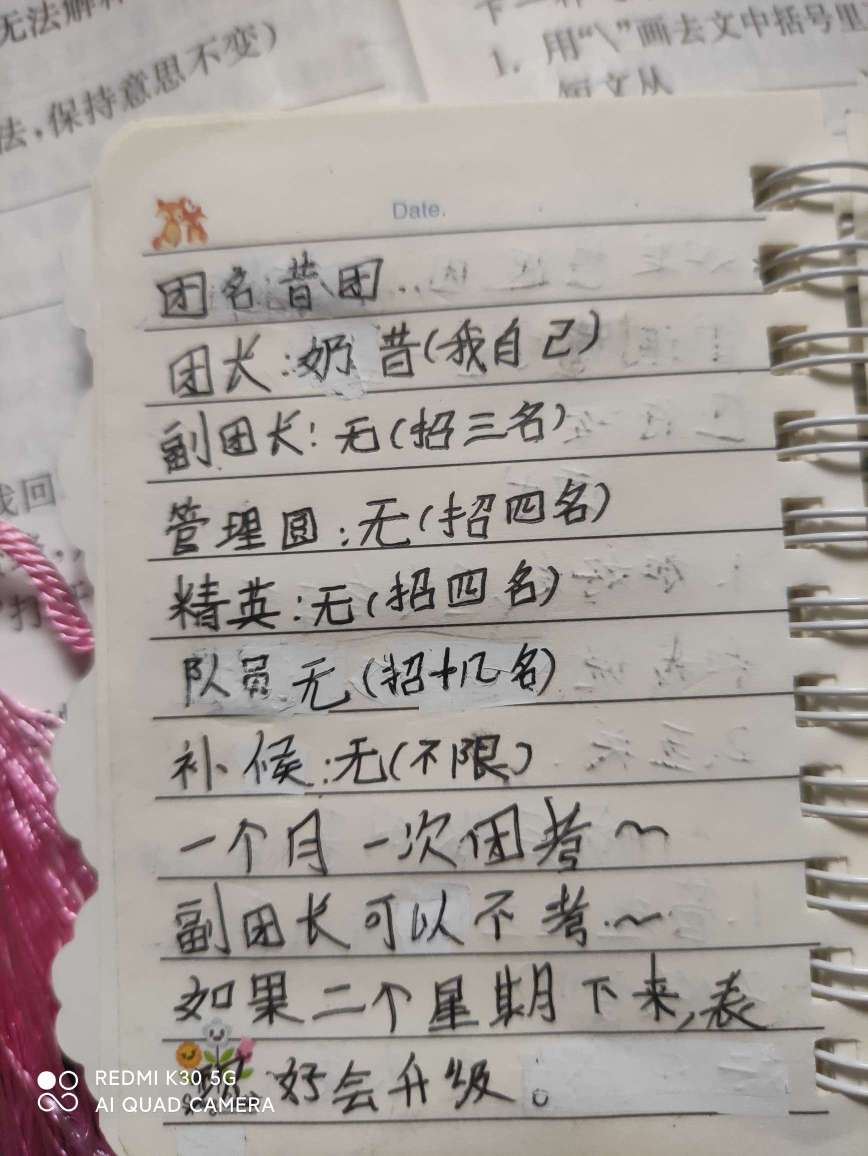 无法解
法，保持意思不变）
1. 用“\”画去文中括号里
短文从
找回
打
Date.
团名昔团..
团长:奶昔(我自己)
副团长:无(招三名)
管理圆:无(招四名)
精英:无(招四名)
队员 无(招十几名)
补候:无(不限)
一个月一次团考～
副团长可以不考.～
如果二个星期下来,表
现 好会升级。
REDMI K30 5G
AI QUAD CAMERA